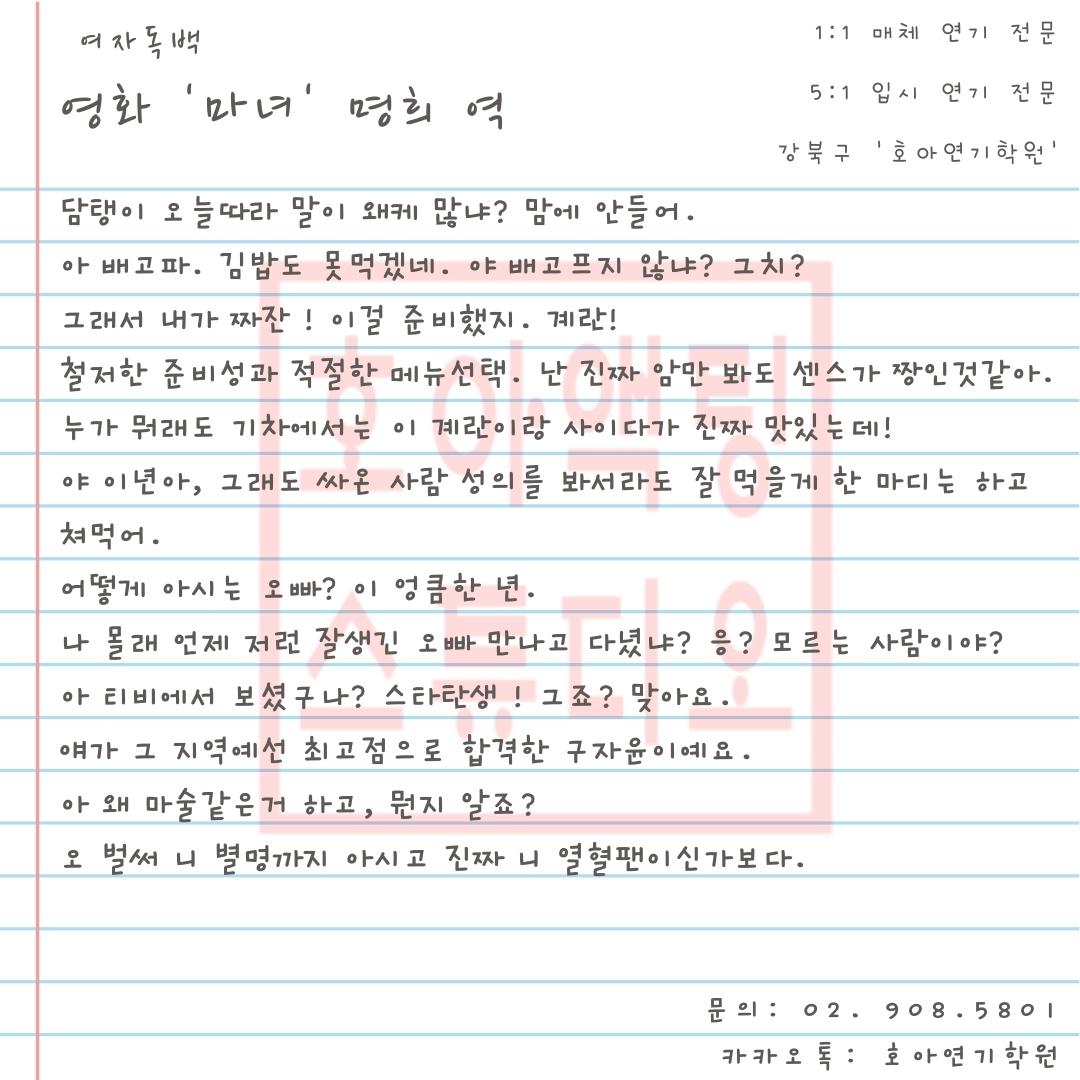 여자독백
영화 '마녀' 명희 역
1:1 매체 연기 전문
5:1 입시 연기 전문
강북구 '호아연기학원'
담탱이 오늘따라 말이 왜케 많냐? 맘에 안들어.
아 배고파. 김밥도 못먹겠네. 야 배고프지 않냐? 그치?
그래서 내가 짜잔 ! 이걸 준비했지. 계란!
철저한 준비성과 적절한 메뉴선택. 난 진짜 암만 봐도 센스가 짱인것같아.
누가 뭐래도 기차에서는 이 계란이랑 사이다가 진짜 맛있는데!
야 이년아, 그래도 싸온 사람 성의를 봐서라도 잘 먹을게 한 마디는 하고
쳐먹어.
어떻게 아시는 오빠? 이 엉큼한 년.
나 몰래 언제 저런 잘생긴 오빠 만나고 다녔냐? 응? 모르는 사람이야?
아 티비에서 보셨구나? 스타탄생 ! 그죠? 맞아요.
얘가 그 지역예선 최고점으로 합격한 구자윤이예요.
아 왜 마술같은거 하고, 뭔지 알죠?
오 벌써 니 별명까지 아시고 진짜 니 열혈팬이신가보다.
호아액팅
스튜디오
문의: 02. 908.5801
카카오톡: 호아연기학원